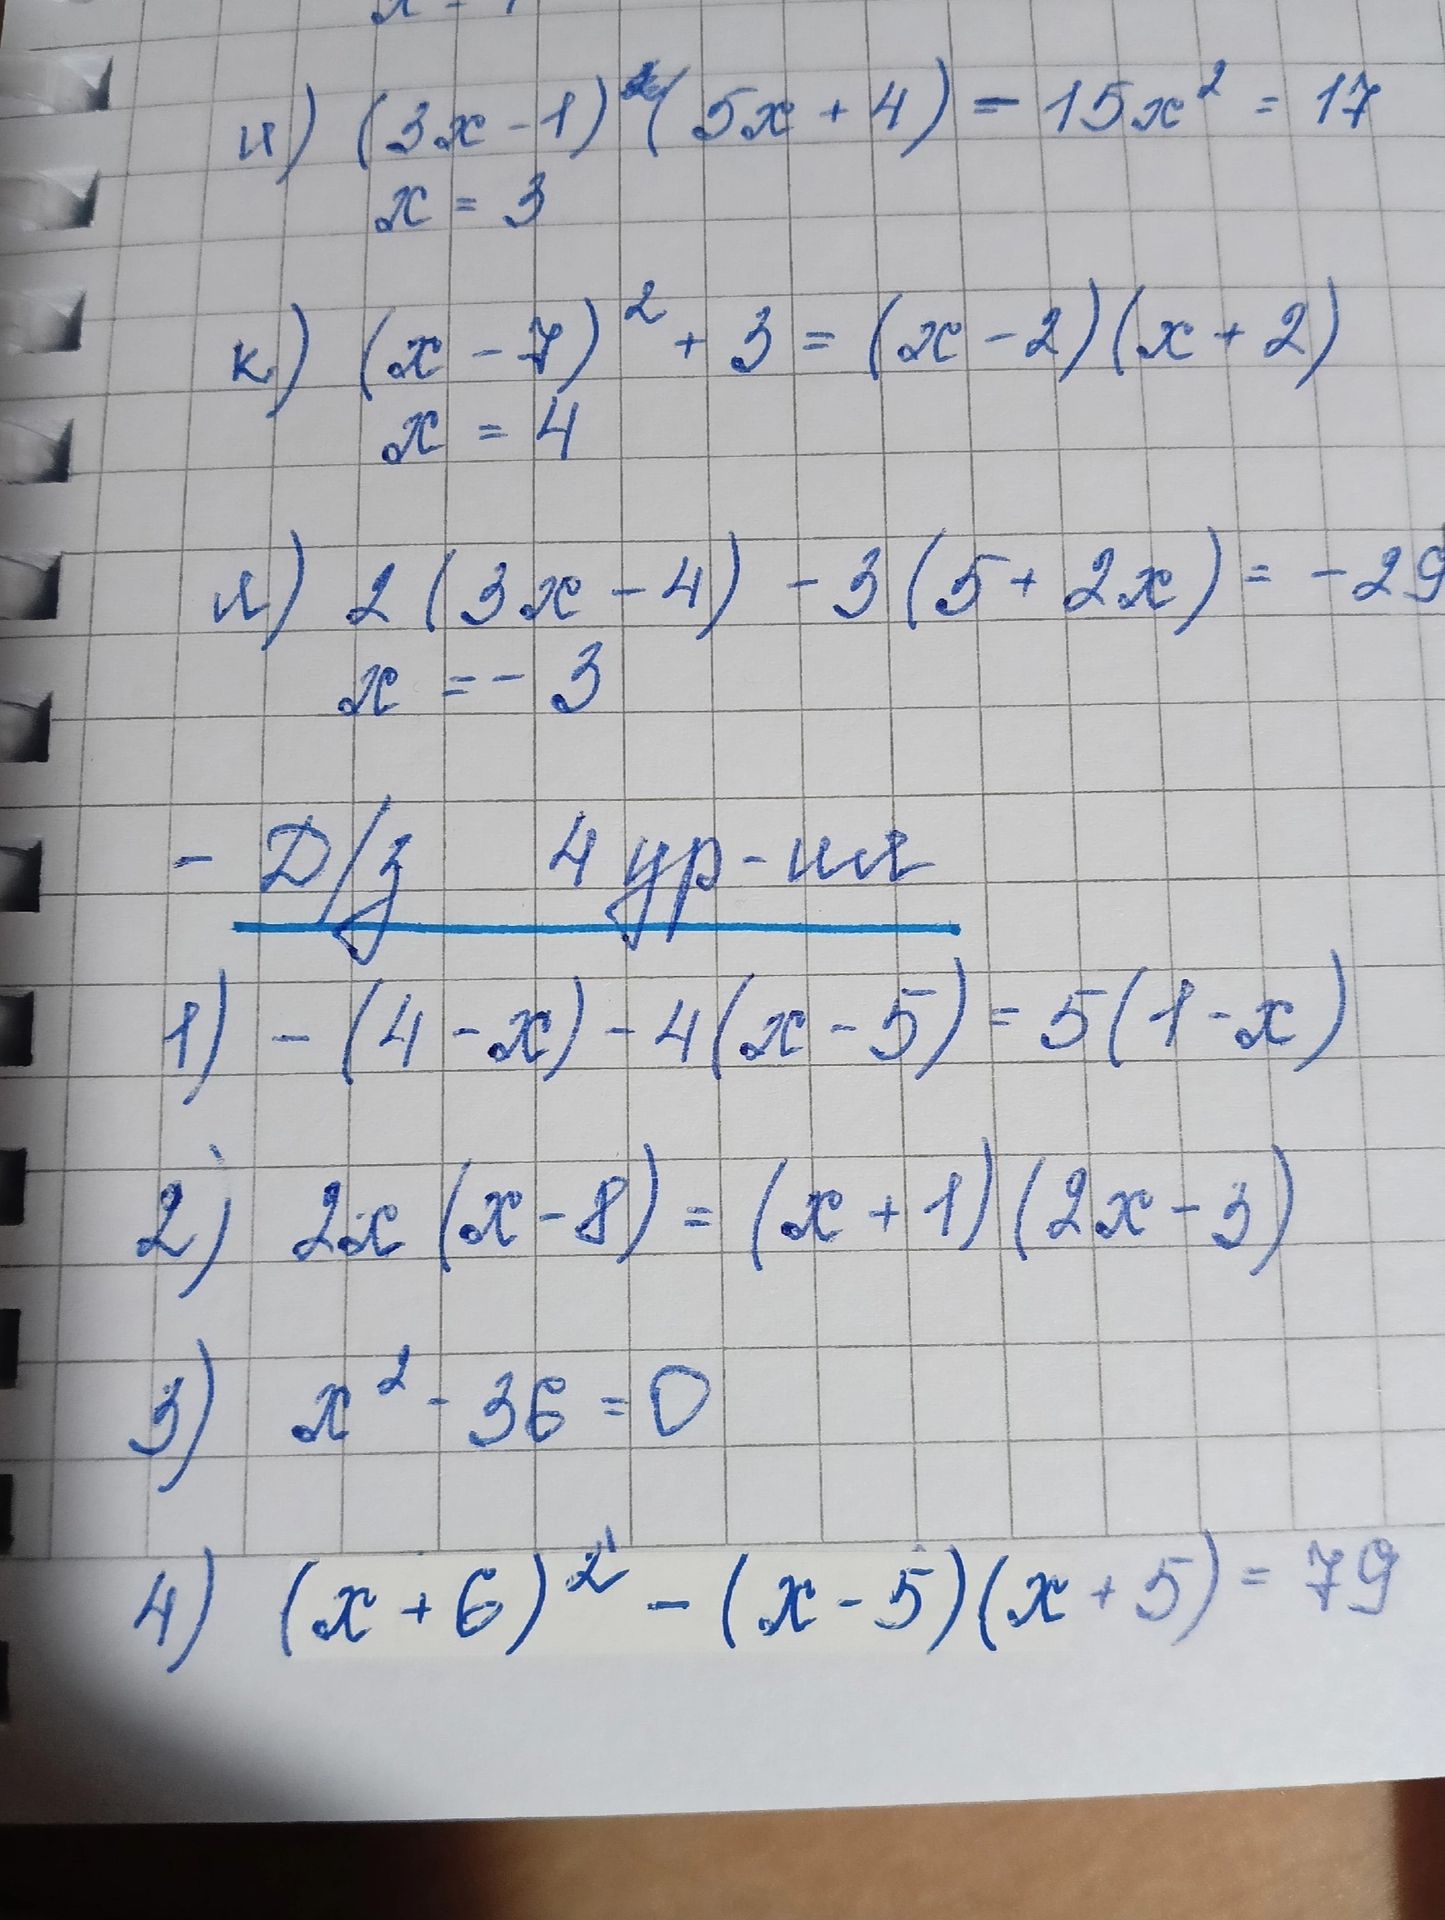 и) (3x - 1)(5x + 4) - 15x² = 17
x = 3
к) (x - 7)² + 3 = (x - 2)(x + 2)
x = 4
л) 2(3x - 4) - 3(5 + 2x) = -29
x = - 3
- Д/з 4 ур-ия
1) - (4 - x) - 4(x - 5) = 5(1 - x)
2) 2x(x - 8) = (x + 1)(2x - 3)
3) x² - 36 = 0
4) (x + 6)² - (x - 5)(x + 5) = 79